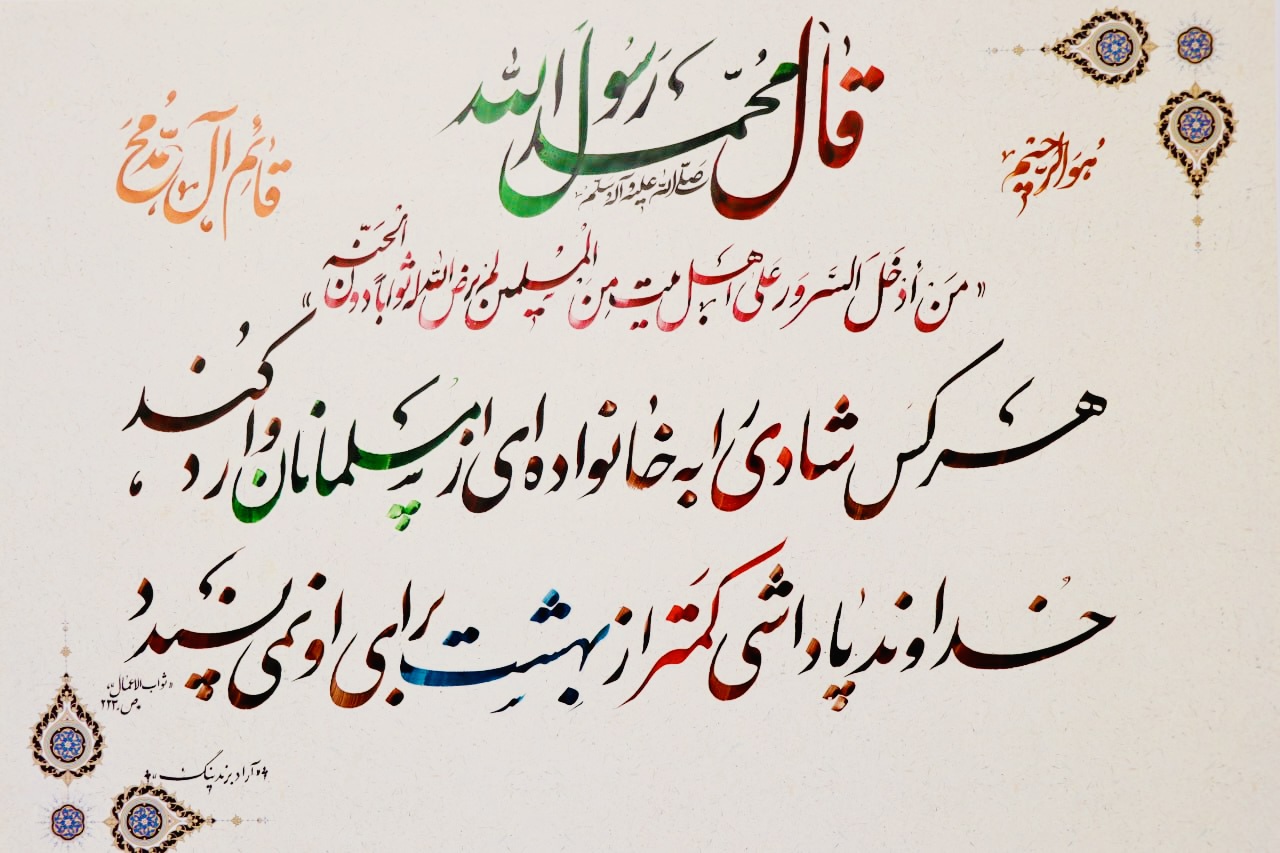 هُوَ الرّحیم
قال مُحمّد رَسُول الله
صَلّی الله علیه و آله و سلم
قائم آل مُحَمّد
«مَن أدخَلَ السَّرورَ عَلیٰ أهل بیت مِن الْمُسلِمین لَم یَرضَ الله لَه ثَواباً دونَ الْجَنّه»
هرکس شادی را به خانواده ای از مسلمانان وارد کُند،
خُداوند پاداشی کمتر از بهشت برای او نمی پسندد
«ثواب الاعمال»،
ص ۲۲۳
آراد برندینگ